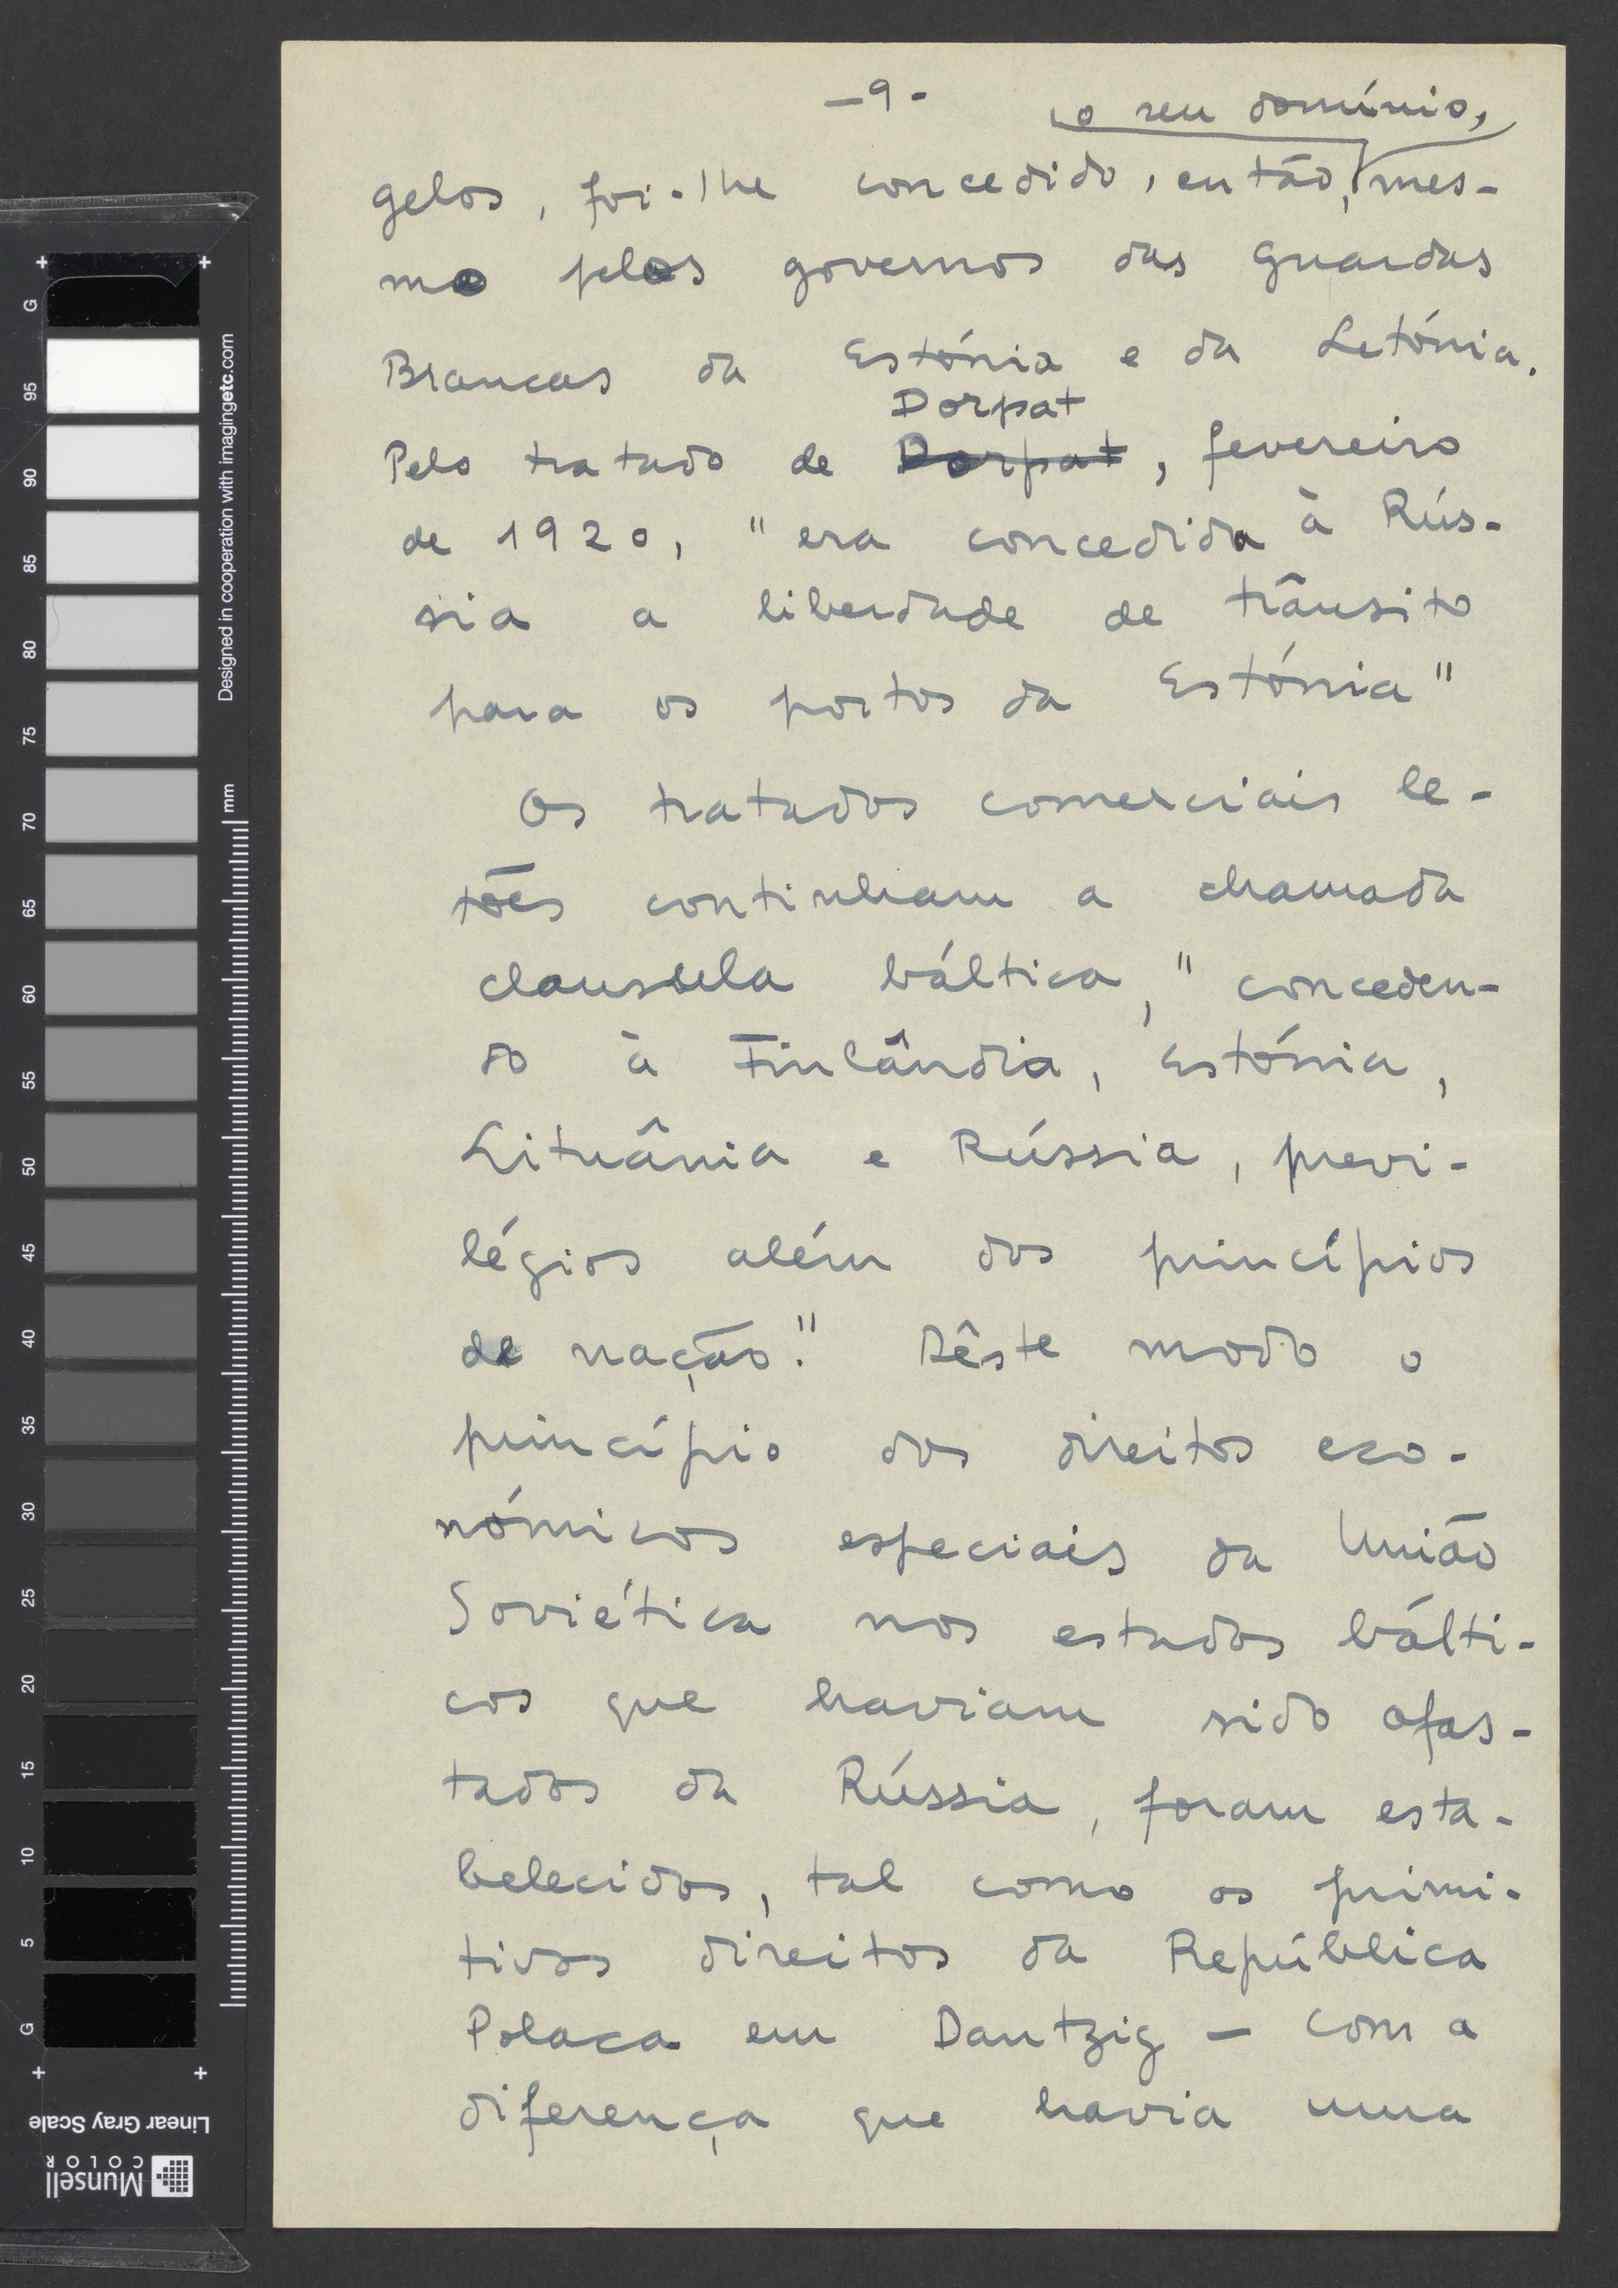 -9-
o seu domínio,
gelos, foi-lhe concedido, então, mes-
mo pelos governos das Guardas
Brancas da Estónia e da Letónia.
Dorpat
Pelo tratado de Dorpat, fevereiro
de 1920, "era concedida à Rús-
sia a liberdade de trânsito
para os portos da Estónia"
Os tratados comerciais le-
tões continham a chamada
claussula báltica, "conceden-
do à Finlândia, Estónia,
Lituânia e Rússia, previ-
légios além dos princípios
de nação." Dêste modo o
princípio dos direitos eco-
nómicos especiais da União
Soviética nos estados bálti-
cos que haviam sido afas-
tados da Rússia, foram esta-
belecidos, tal como os primi-
tivos direitos da República
Polaca em Dantzig — com a
diferença que havia uma
G
95
90
85
80
75
70
65
60
55
50
45
40
35
30
25
20
15
10
5
G
Designed in cooperation with imagingetc.com
mm
Linear Gray Scale
Munsell
COLOR